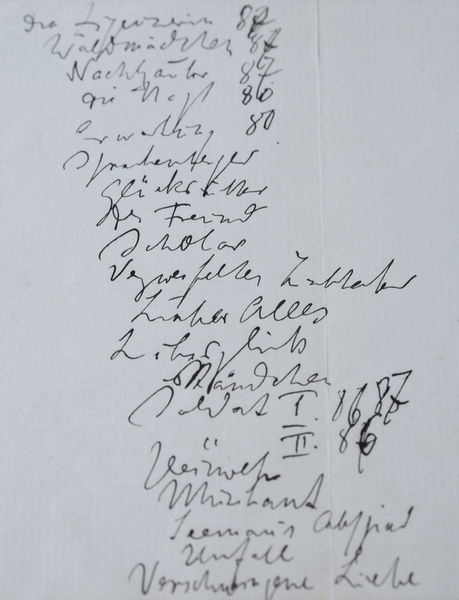 Die Zigeunerin 87
Waldmädchen 87
Nachtzauber 87
Die Nacht 80
Erwartung 80
Schreckenberger
Glücksritter
Der Freund
Scholar
Verzweifelter Liebhaber
Lieber Alles
Liebesglück
Ständchen
Soldat I. 87
II. 86
Heimweh
Musikant
Seemanns Abschied
Unfall
Verschwiegene Liebe